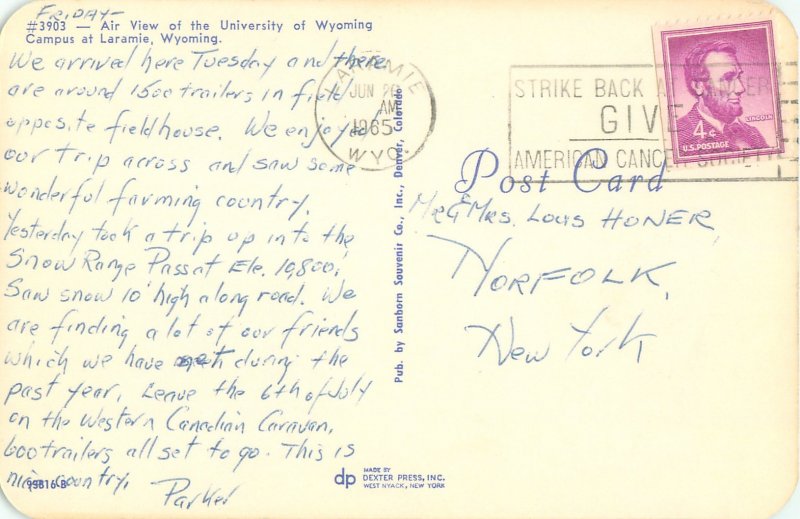 FRIDAY-
#3903 — Air View of the University of Wyoming
Campus at Laramie, Wyoming.
We arrived here Tuesday and there
are around 1500 trailers in field
opposite fieldhouse. We enjoyed
our trip across and saw some
wonderful farming country.
Yesterday took a trip up into the
Snow Range Pass at Ele. 10,800,
Saw snow 10' high along road. We
are finding a lot of our friends
which we have met during the
past year. Leave the 6th of July
on the Western Canadian Caravan,
600 trailers all set to go. This is
nice country.
Parker
99816-B
Pub. by Sanborn Souvenir Co., Inc., Denver, Colorado
dp
MADE BY
DEXTER PRESS, INC.
WEST NYACK, NEW YORK
LARAMIE
JUN 26
AM
1965
WYO.
STRIKE BACK AT CANCER
GIVE
AMERICAN CANCER SOCIETY
LINCOLN
4¢
U.S. POSTAGE
Post Card
Mr & Mrs. Louis HONER,
NORFOLK,
New York